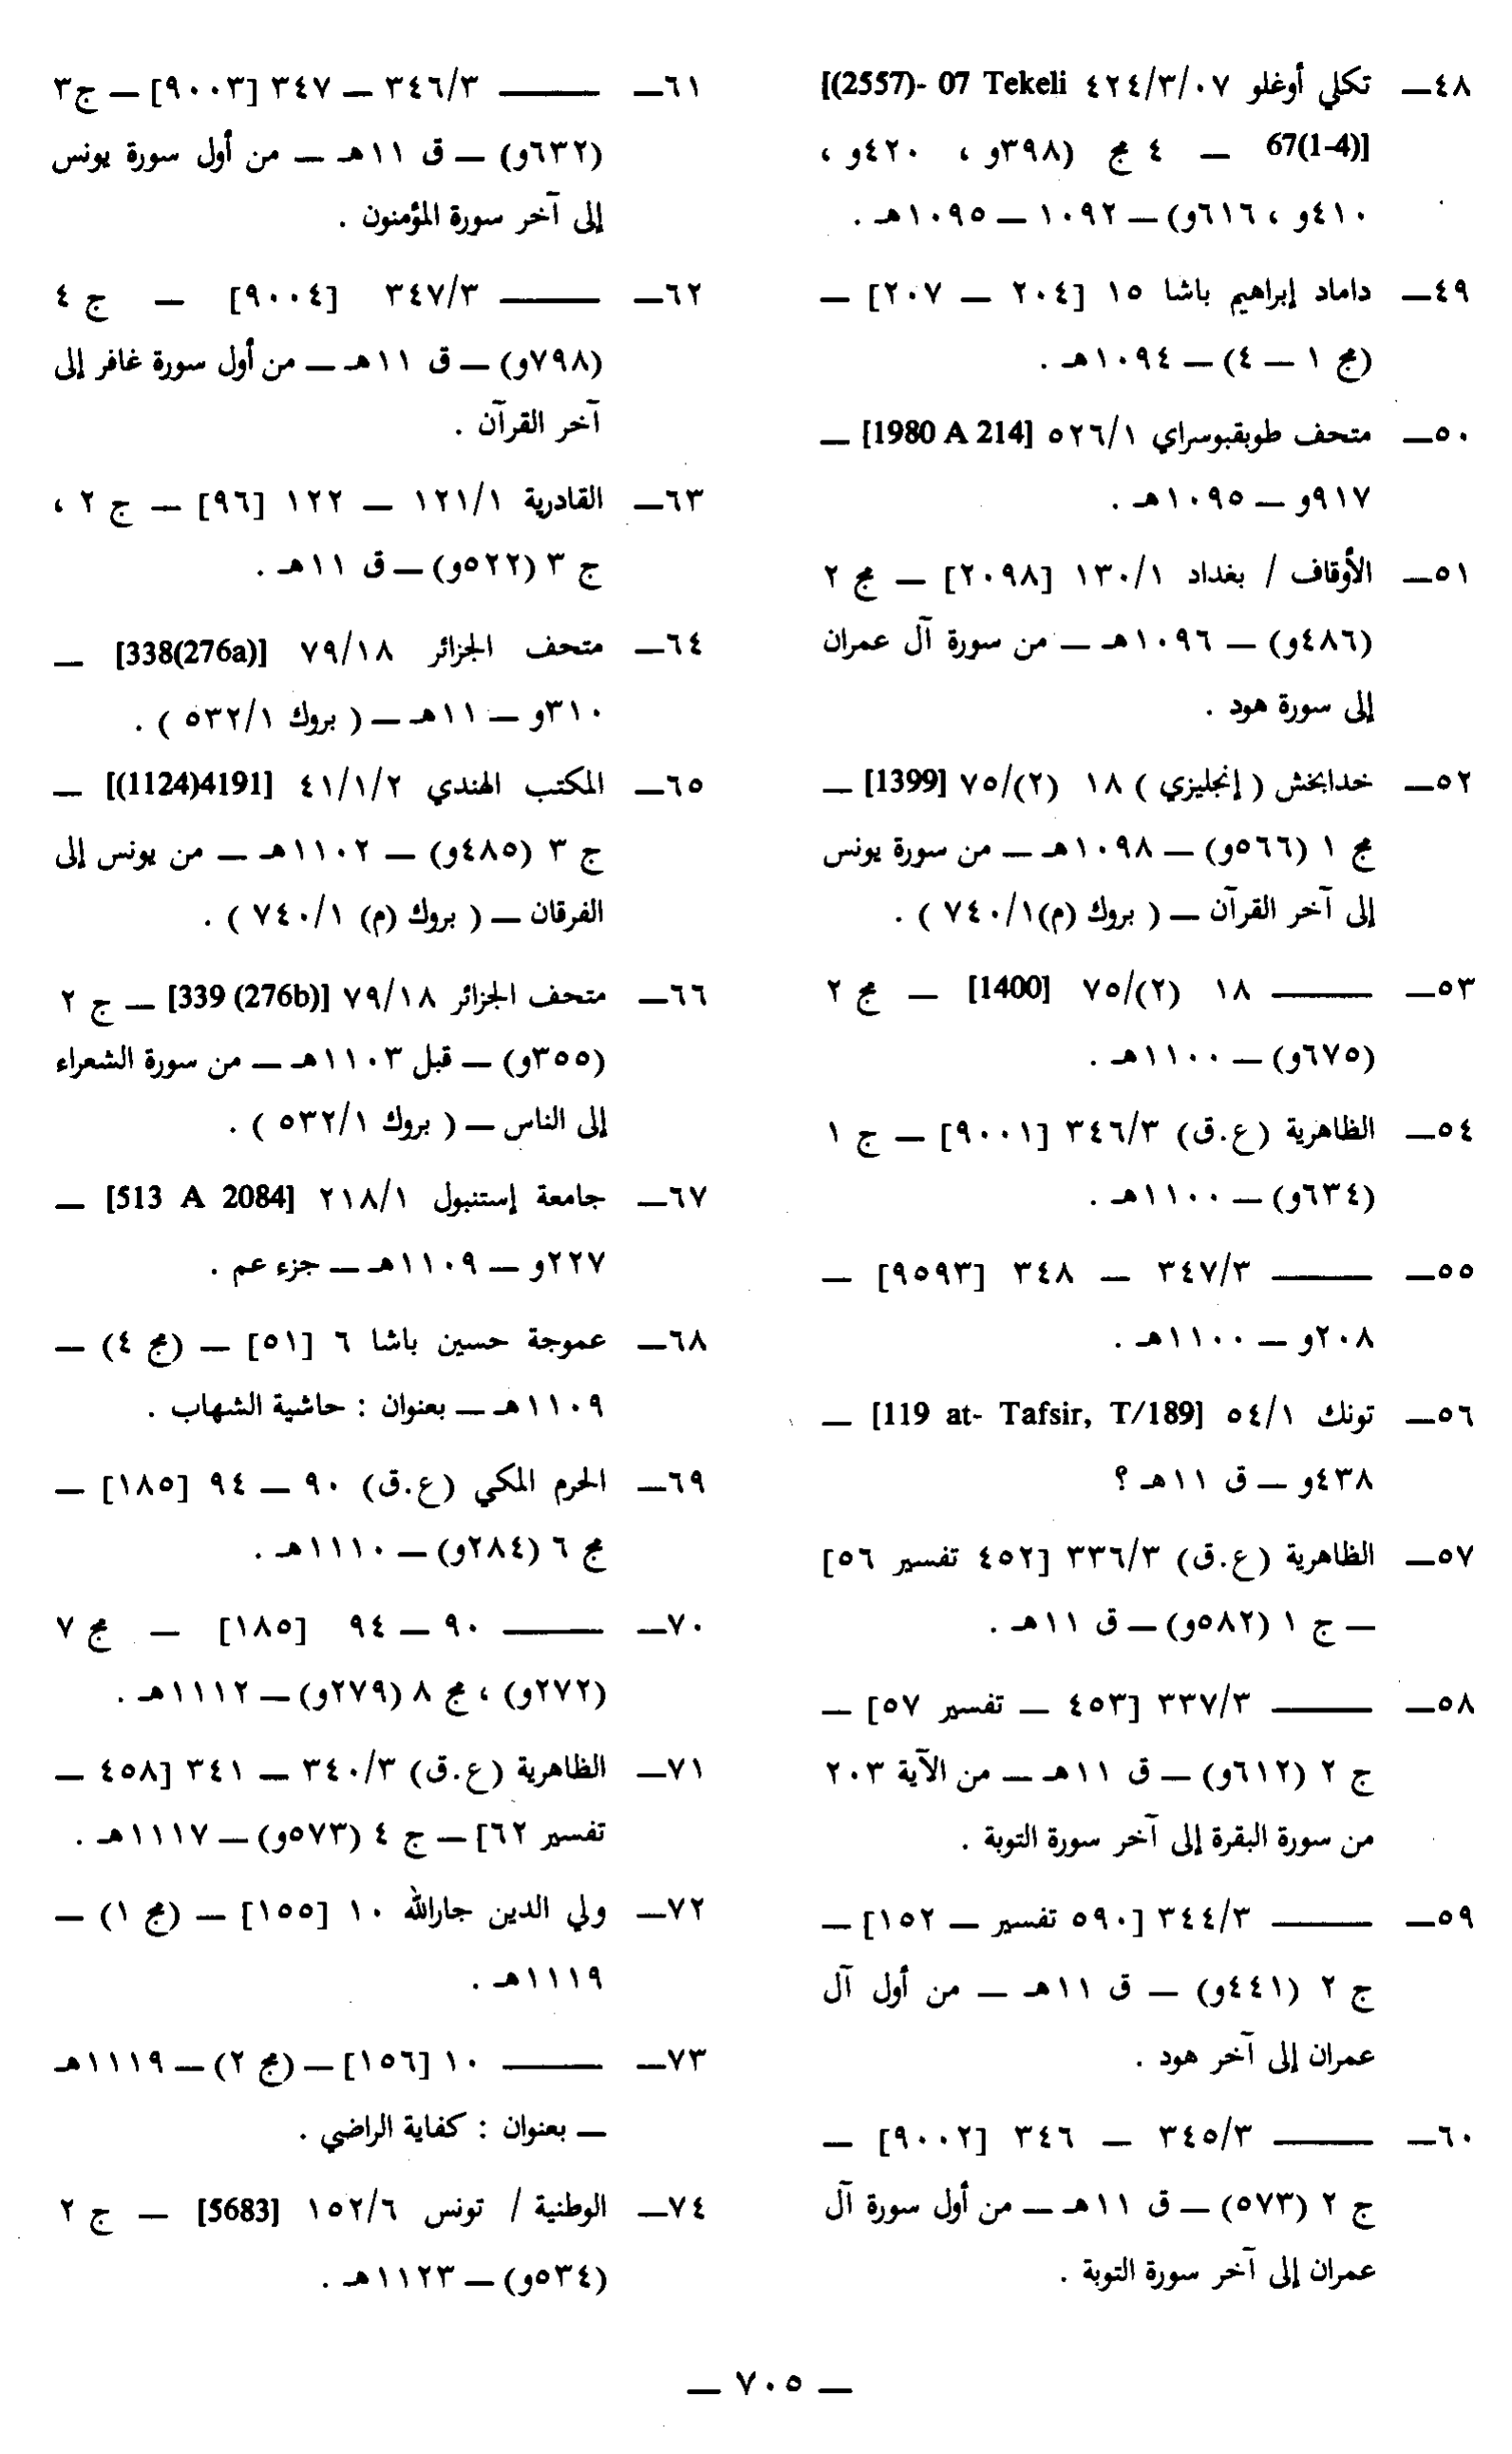 ٤٨ـ تكلي أوغلو ٤٢٤/٣/٠٧ [(2557)- 07 Tekeli
67(1-4)] ـ ٤ مج (٣٩٨و ، ٤٢٠و ،
٤١٠و ، ٦١٦و) ـ ١٠٩٢ ـ ١٠٩٥هـ .
٤٩ـ داماد إبراهيم باشا ١٥ [٢٠٤ ـ ٢٠٧] ـ
(مج ١ ـ ٤) ـ ١٠٩٤هـ .
٥٠ـ متحف طوبقبوسراي ٥٢٦/١ [1980 A 214] ـ
٩١٧و ـ ١٠٩٥هـ .
٥١ـ الأوقاف / بغداد ١٣٠/١ [٢٠٩٨] ـ مج ٢
(٤٨٦و) ـ ١٠٩٦هـ ـ من سورة آل عمران
إلى سورة هود .
٥٢ـ خدابخش ( إنجليزي ) ١٨ (٢)/٧٥ [1399] ـ
مج ١ (٥٦٦و) ـ ١٠٩٨هـ ـ من سورة يونس
إلى آخر القرآن ـ ( بروك (م)٧٤٠/١ ) .
٥٣ـ ــــــ ١٨ (٢)/٧٥ [1400] ـ مج ٢
(٦٧٥و) ـ ١١٠٠هـ .
٥٤ـ الظاهرية (ع.ق) ٣٤٦/٣ [٩٠٠١] ـ ج ١
(٦٣٤و) ـ ١١٠٠هـ .
٥٥ـ ــــــ ٣٤٧/٣ ـ ٣٤٨ [٩٥٩٣] ـ
٢٠٨و ـ ١١٠٠هـ .
٥٦ـ تونك ٥٤/١ [119 at- Tafsir, T/189] ـ
٤٣٨و ـ ق ١١هـ ؟
٥٧ـ الظاهرية (ع.ق) ٣٣٦/٣ [٤٥٢ تفسير ٥٦]
ـ ج ١ (٥٨٢و) ـ ق ١١هـ .
٥٨ـ ــــــ ٣٣٧/٣ [٤٥٣ ـ تفسير ٥٧] ـ
ج ٢ (٦١٢و) ـ ق ١١هـ ـ من الآية ٢٠٣
من سورة البقرة إلى آخر سورة التوبة .
٥٩ـ ــــــ ٣٤٤/٣ [٥٩٠ تفسير ـ ١٥٢] ـ
ج ٢ (٤٤١و) ـ ق ١١هـ ـ من أول آل
عمران إلى آخر هود .
٦٠ـ ــــــ ٣٤٥/٣ ـ ٣٤٦ [٩٠٠٢] ـ
ج ٢ (٥٧٣) ـ ق ١١هـ ـ من أول سورة آل
عمران إلى آخر سورة التوبة .
٦١ـ ــــــ ٣٤٦/٣ ـ ٣٤٧ [٩٠٠٣] ـ ج٣
(٦٣٢و) ـ ق ١١هـ ـ من أول سورة يونس
إلى آخر سورة المؤمنون .
٦٢ـ ــــــ ٣٤٧/٣ [٩٠٠٤] ـ ج ٤
(٧٩٨و) ـ ق ١١هـ ـ من أول سورة غافر إلى
آخر القرآن .
٦٣ـ القادرية ١٢١/١ ـ ١٢٢ [٩٦] ـ ج ٢ ،
ج ٣ (٥٢٢و) ـ ق ١١هـ .
٦٤ـ متحف الجزائر ٧٩/١٨ [338(276a)] ـ
٣١٠و ـ ١١هـ ـ ( بروك ٥٣٢/١ ) .
٦٥ـ المكتب الهندي ٤١/١/٢ [(1124)4191] ـ
ج ٣ (٤٨٥و) ـ ١١٠٢هـ ـ من يونس إلى
الفرقان ـ ( بروك (م) ٧٤٠/١ ) .
٦٦ـ متحف الجزائر ٧٩/١٨ [339 (276b)] ـ ج ٢
(٣٥٥و) ـ قبل ١١٠٣هـ ـ من سورة الشعراء
إلى الناس ـ ( بروك ٥٣٢/١ ) .
٦٧ـ جامعة إستنبول ٢١٨/١ [513 A 2084] ـ
٢٢٧و ـ ١١٠٩هـ ـ جزء عم .
٦٨ـ عموجة حسين باشا ٦ [٥١] ـ (مج ٤) ـ
١١٠٩هـ ـ بعنوان : حاشية الشهاب .
٦٩ـ الحرم المكي (ع.ق) ٩٠ ـ ٩٤ [١٨٥] ـ
مج ٦ (٢٨٤و) ـ ١١١٠هـ .
٧٠ـ ــــــ ٩٠ ـ ٩٤ [١٨٥] ـ مج ٧
(٢٧٢و) ، مج ٨ (٢٧٩و) ـ ١١١٢هـ .
٧١ـ الظاهرية (ع.ق) ٣٤٠/٣ ـ ٣٤١ [٤٥٨ ـ
تفسير ٦٢] ـ ج ٤ (٥٧٣و) ـ ١١١٧هـ .
٧٢ـ ولي الدين جارالله ١٠ [١٥٥] ـ (مج ١) ـ
١١١٩هـ .
٧٣ـ ــــــ ١٠ [١٥٦] ـ (مج ٢) ـ ١١١٩هـ
ـ بعنوان : كفاية الراضي .
٧٤ـ الوطنية / تونس ١٥٢/٦ [5683] ـ ج ٢
(٥٣٤و) ـ ١١٢٣هـ .
ـ ٧٠٥ ـ